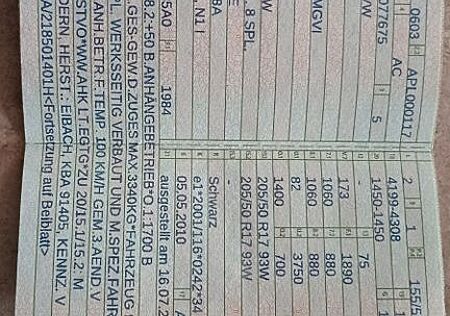 0603 API000117 2 1 155/5
AC 4199-4308
077675 5 1450-1450
75
173 1890
1060 880
MGVI 1060 880
82 3750
1400 700
205/50 R17 93W
, 8 SPL. 205/50 R17 93W
-
Schwarz
N1 I e1*2001/116*0242*34
05.05.2010
5AO 1984 ausgestellt am 16.07.2
8.2:+50 B.ANHÄNGEBETRIEB*O.1:1700 B
.GES-GEW.D.ZUGES MAX.3340KG*FAHRZEUG
PL.WERKSSEITIG VERBAUT UND M.SPEZ.FAHR
ANH.BETR.F.TEMP. 100 KM/H GEM.3.AEND.V
STVO*WW.AHK LT.EGTG*ZU 20/15.1/15.2: M
DERN, HERST.: EIBACH, KBA 91405, KENNZ. V
A/218501401H<Fortsetzung auf Beiblatt>